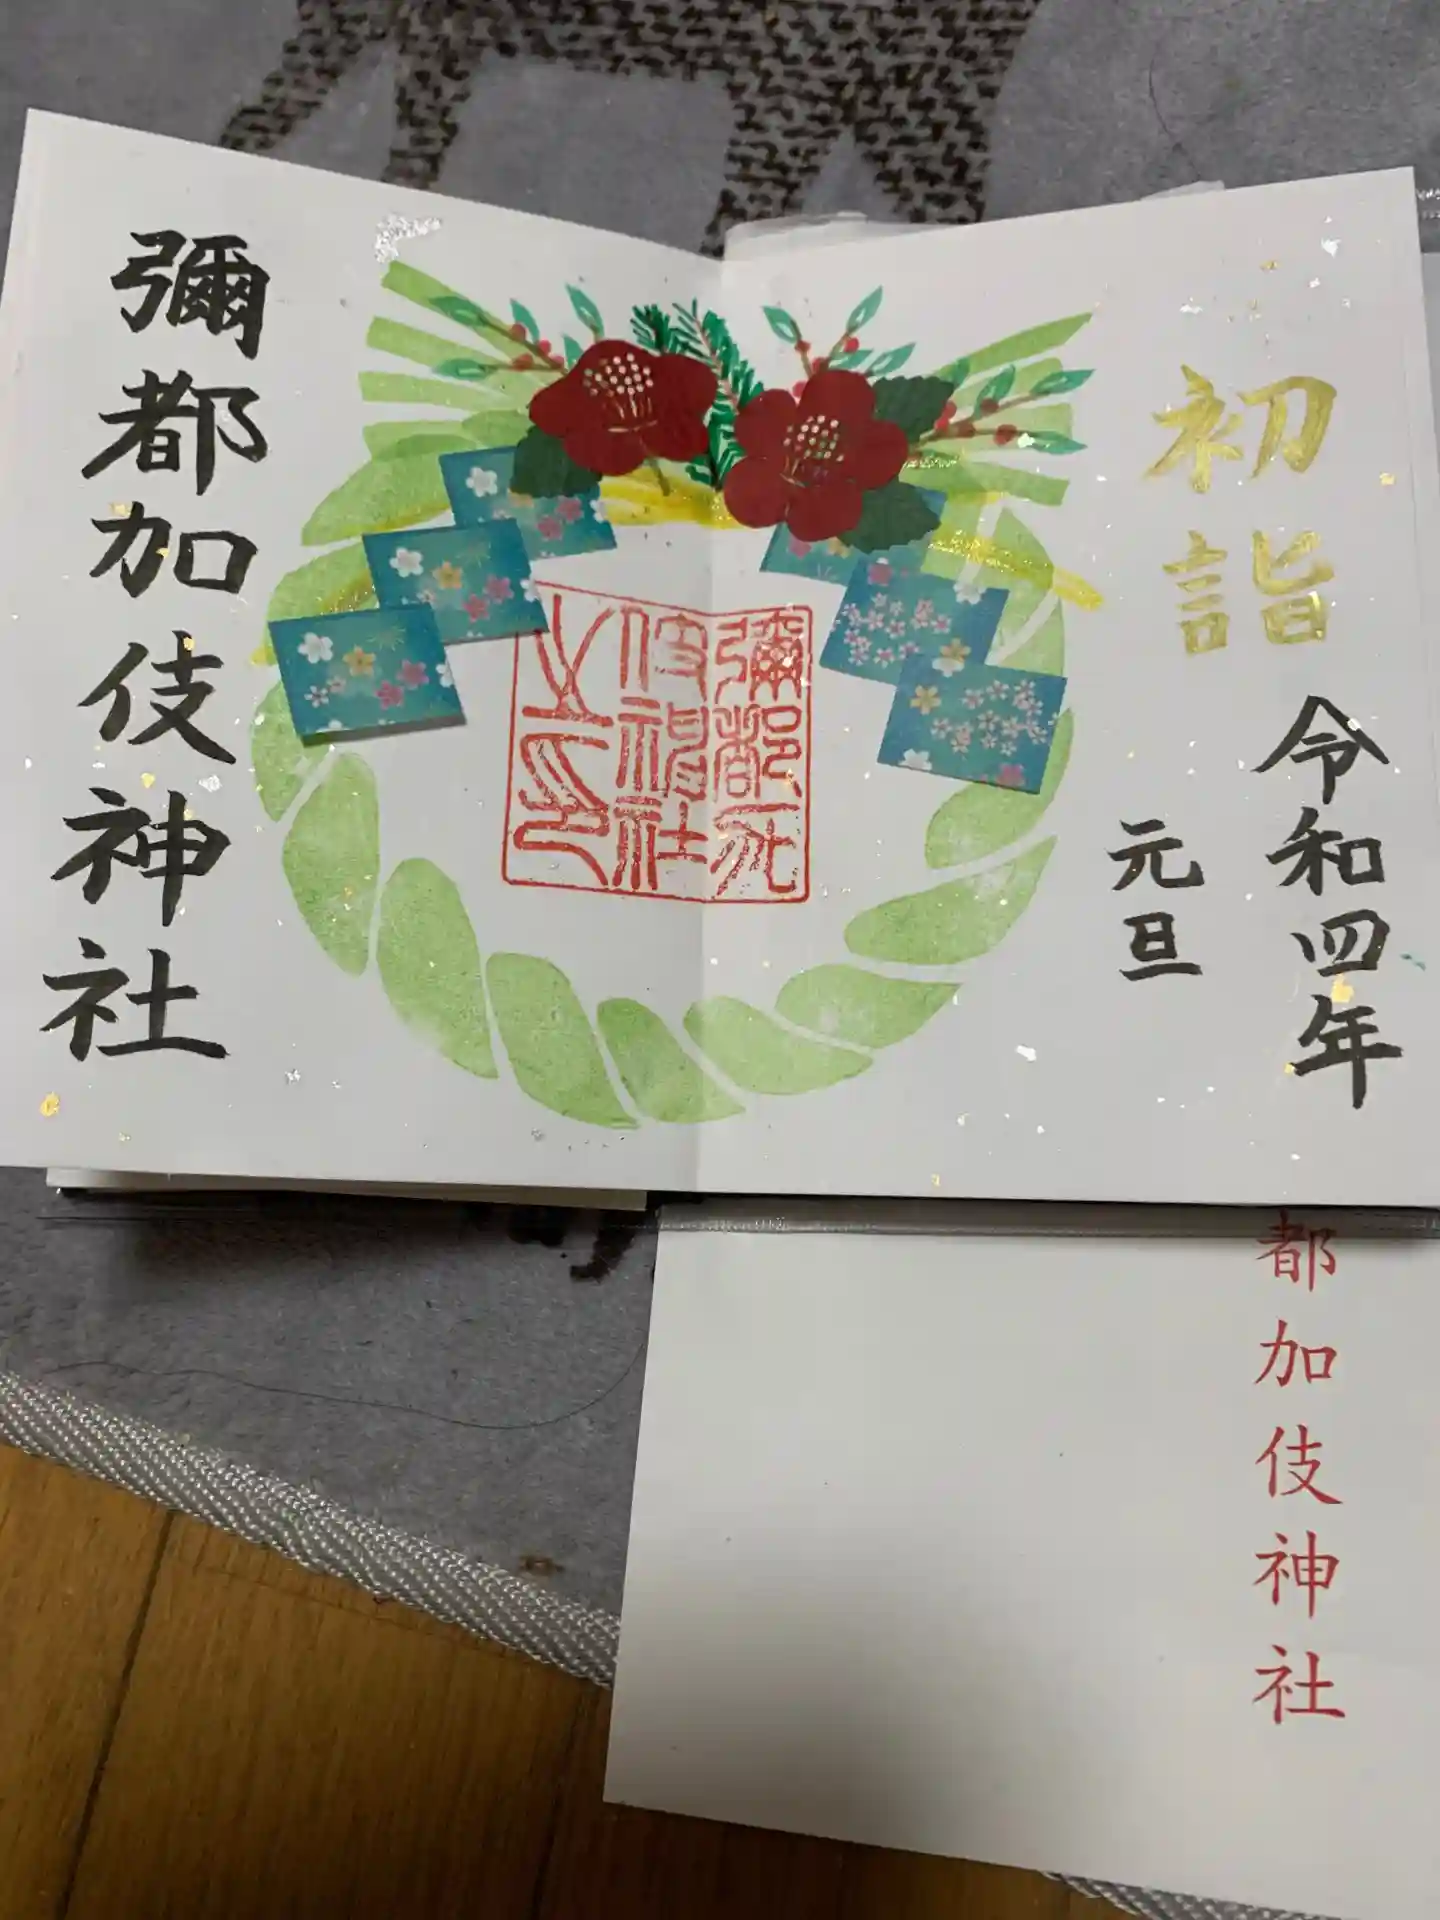 初詣
令和四年
元旦
彌都加
伎神社
之印
彌都加伎神社
都加伎神社